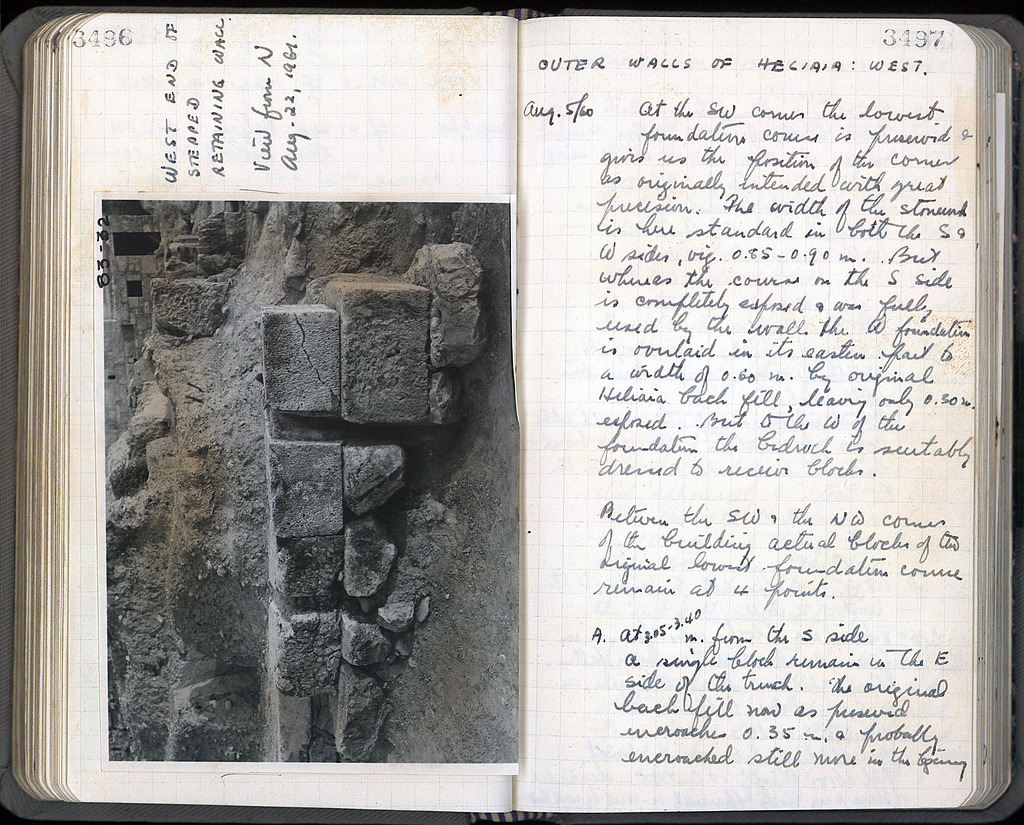 3496
WEST END OF
STEPPED
RETAINING WALL.
View from N
Aug. 22, 1961.
83-32
3497
OUTER WALLS OF HELIAIA: WEST.
Aug. 5/60
At the SW corner the lowest
foundation course is preserved &
gives us the position of the corner
as originally intended with great
precision. The width of the stonework
is here standard in both the S &
W sides, viz. 0.85-0.90 m. But
whereas the course on the S side
is completely exposed & was fully
used by the wall the W foundation
is overlaid in its eastern part to
a width of 0.60 m. by original
Heliaia back fill, leaving only 0.30 m.
exposed. But to the W of the
foundation the bedrock is suitably
dressed to receive blocks.
Between the SW & the NW corners
of the building actual blocks of the
original lowest foundation course
remain at 4 points.
A. At 3.05-3.40 m. from the S side
a single block remains in the E
side of the trench. The original
back fill now as preserved
encroaches 0.35 m. & probably
encroached still more in the